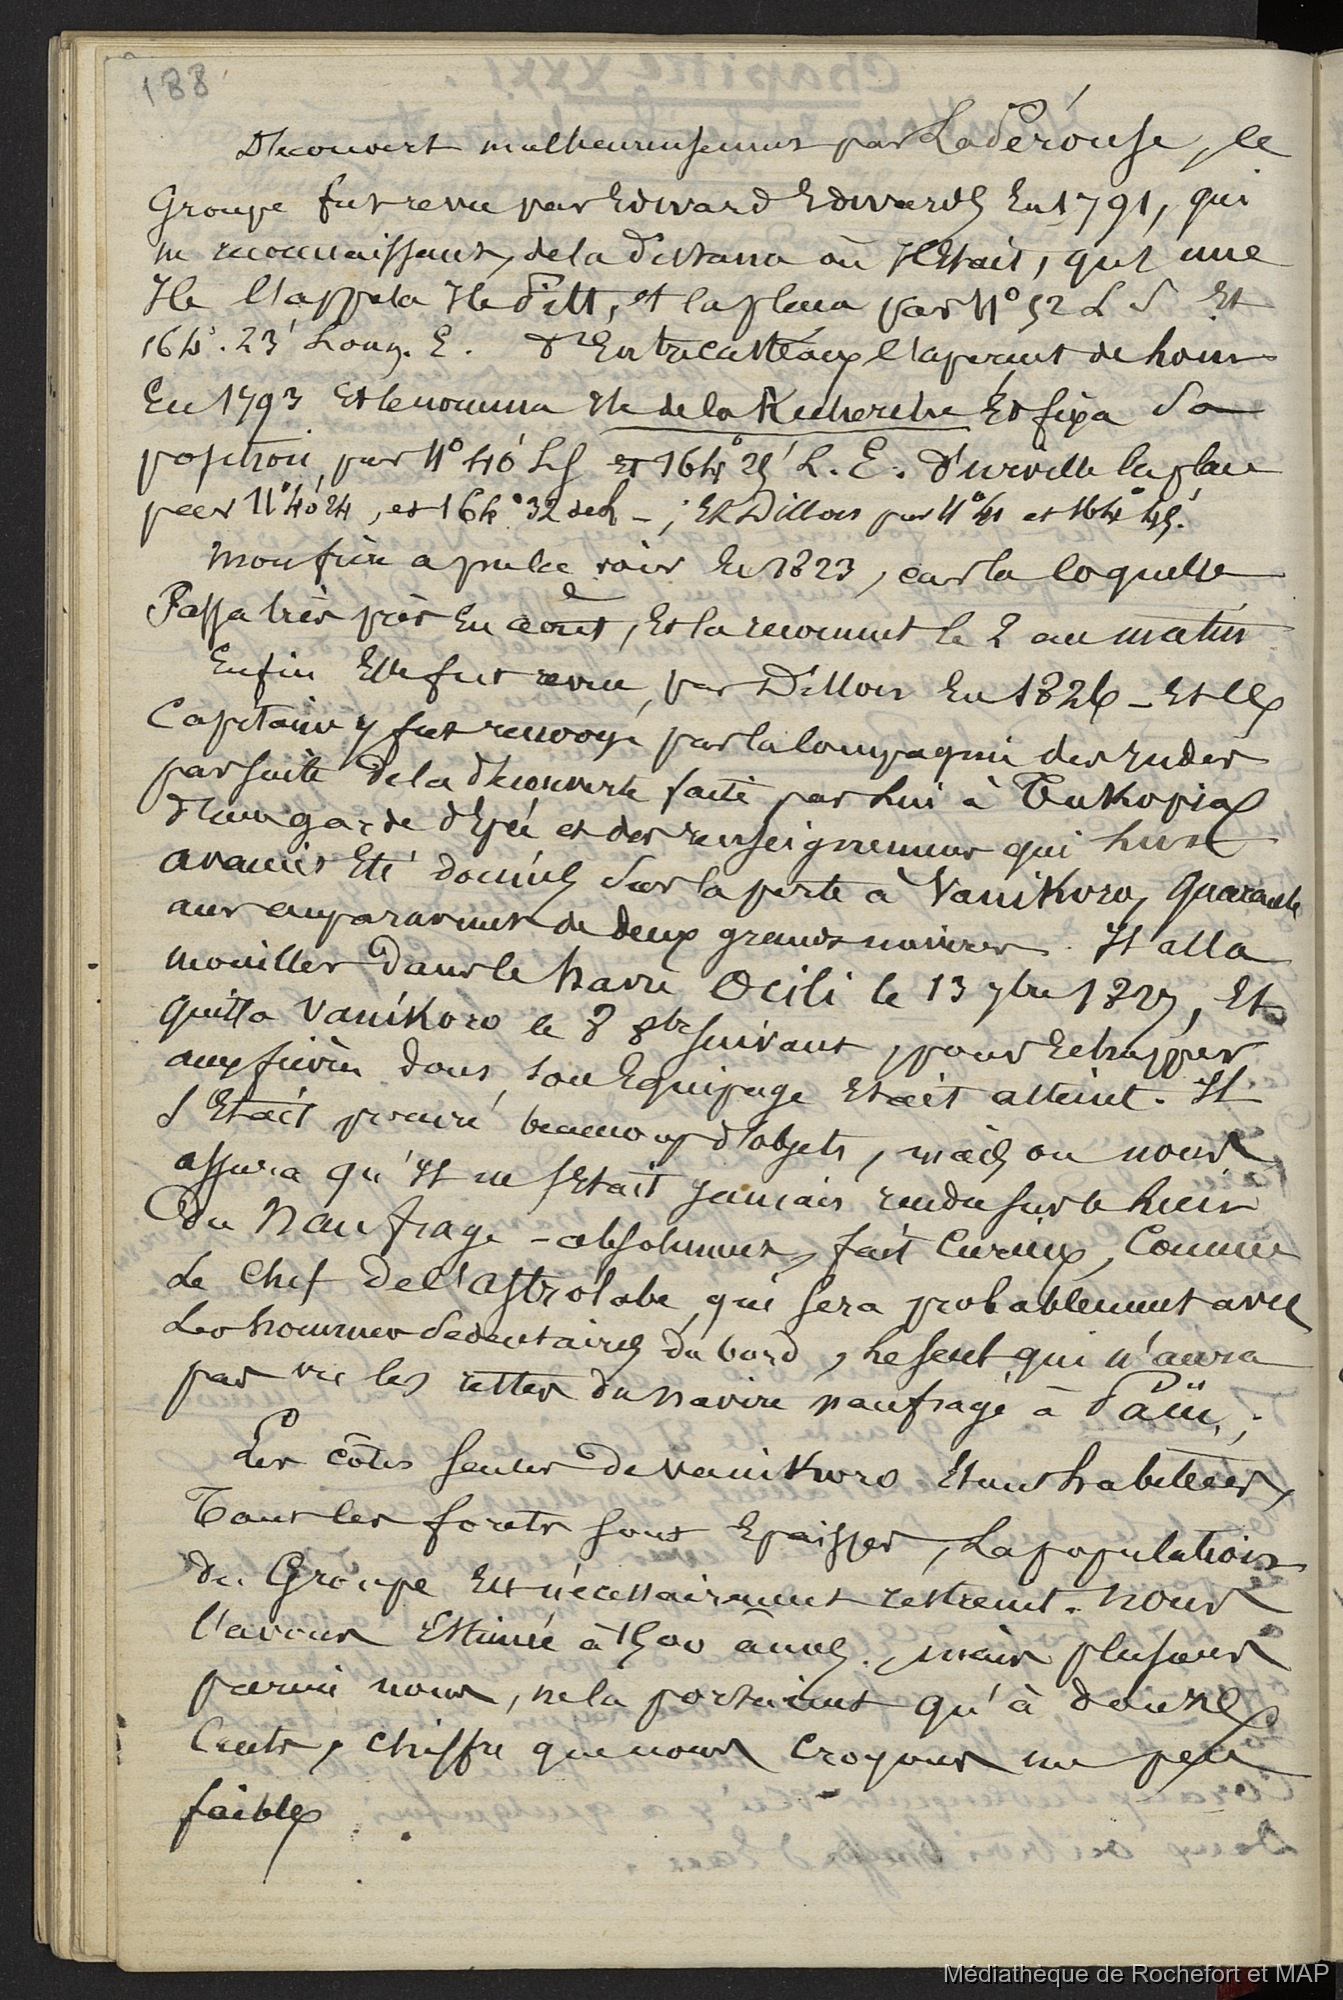 188
Découvert malheureusement par LaPérouse, le
Groupe fut revu par Edward Edwards En 1791, qui
ne reconnaissant, de la distance où Il Etait, qu'une
Ile l'appela Ile Pitt, et la plaça par 11° 52 L S Et
164°. 23' Long. E. D'Entrecasteaux l'aperçut de loin
En 1793 Et le nomma Ile de la Recherche Et fixa Sa
position par 11° 40' LS et 164° 25' L. E. D'urville la place
par 11° 40' 24, et 164° 32 de L – ; Et Dillon par 11° 41 et 164° 45'.
Mon frère a pu le voir En 1823, car la Coquille
Passa très près En août, Et la reconnut le 2 au matin
Enfin Elle fut revue, par Dillon En 1826 – Et le
Capitaine y fut renvoyé par la Compagnie des Indes
par suite de la découverte faite par Lui à Tukopia
d'une garde d'Epée et des renseignements qui Lui
avaient Eté donnés Sur la perte à Vanikoro, Quarante
ans auparavant de deux grands navires. Il alla
mouiller dans le havre Ocili le 13 7bre 1827, Et
quitta Vanikoro le 8 8bre suivant, pour Echapper
aux fièvres dont son Equipage Etait atteint. Il
S'Etait procuré beaucoup d'objets, mais on nous
assura qu'Il ne s'Etait jamais rendu sur le lieu
du Naufrage – absolument, fait Curieux, Comme
Le Chef de l'Astrolabe, qui sera probablement avec
Les hommes Sedentaires du bord, le seul qui n'aura
pas vu les restes du navire naufragé à Païu.;
Les côtes seules de vanikoro Etant habitées,
Tant les forets sont Epaisses, La population
du Groupe Est nécessairement restreint. Nous
l'avons Estimée à 1500 âmes., mais plusieurs
parmi nous, ne la portaient qu'à douze
Cents, chiffre que nous Croyons un peu
faible
Médiathèque de Rochefort et MAP